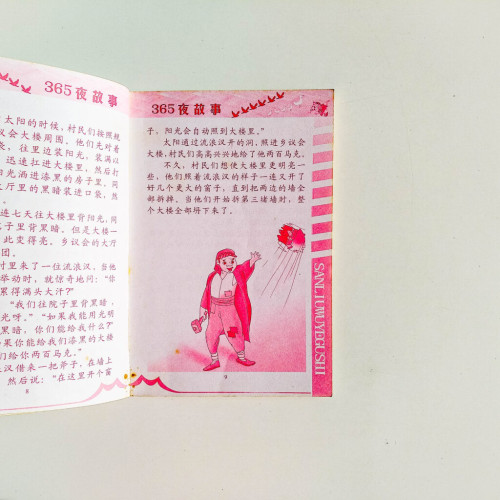 365夜故事
太阳的时候,村民们按照规
议会大楼周围。他们先对着
袋,往里边装阳光,装满以
迅速扛进大楼里,然后打
阳光洒进漆黑的房子里。同
大厅里的黑暗装进口袋,然
连七天往大楼里背阳光,同
院子里背黑暗。但是大楼一
此变得亮。乡议会的大厅
团。
村里来了一位流浪汉,当他
举动时,就惊奇地问:“你
累得满头大汗?”
“我们往院子里背黑暗,
光呀。”“如果我能用光明
黑暗,你们能给我什么?”
果你能给我们漆黑的大楼
们给你两百马克。”
汉借来一把斧子,在墙上
然后说:“在这里开个窗
8
365夜故事
子,阳光会自动照到大楼里。”
太阳通过流浪汉开的洞,照进乡议会
大楼,村民们高高兴兴地给了他两百马克。
不久,村民们想使大楼里更明亮一
些,他们照着流浪汉的样子一连又开了
好几个更大的窗子,直到把两边的墙全
部拆掉。当他们开始拆第三堵墙时,整
个大楼全部垮下来了。
SANLIUWUYEGUSHI
9